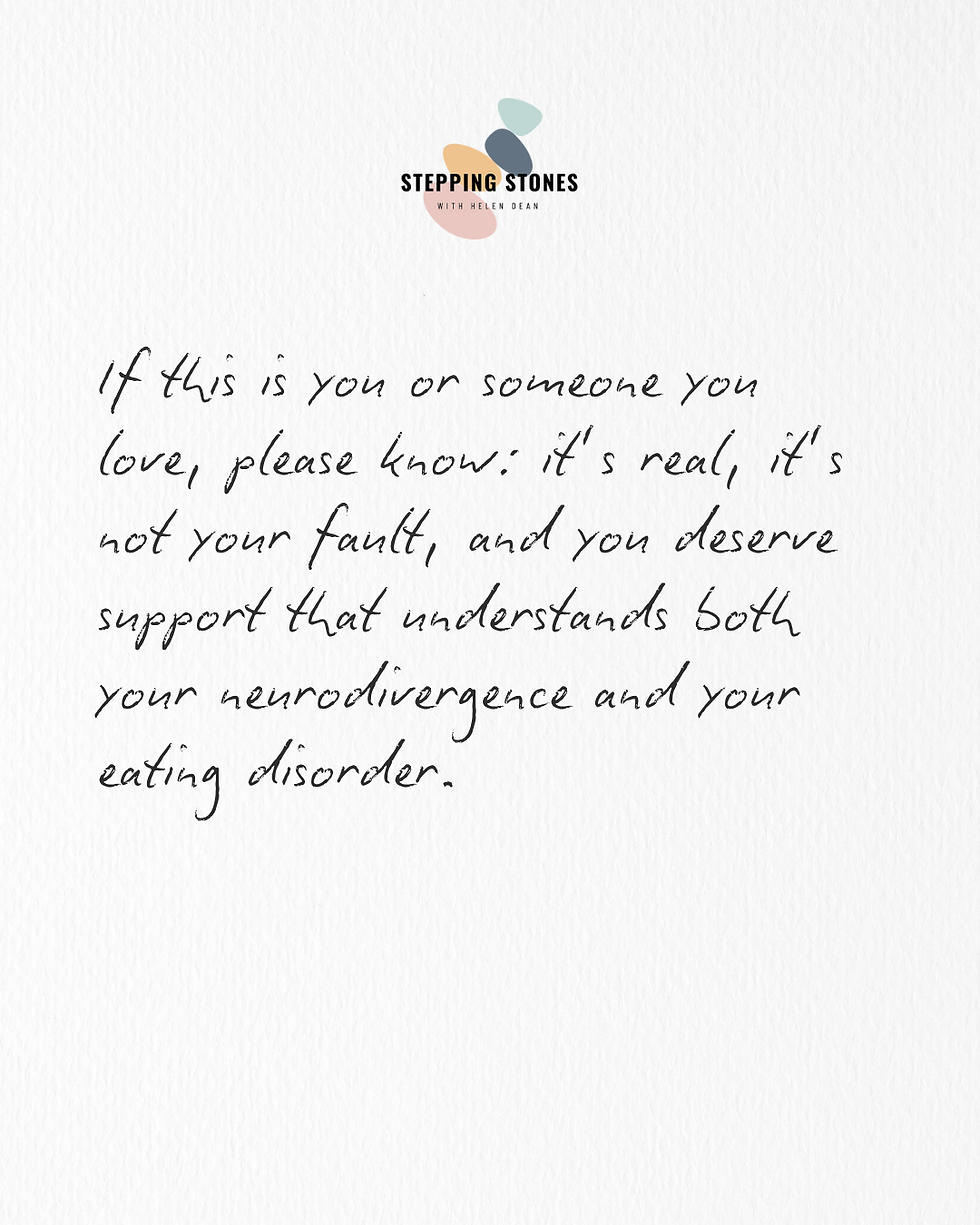 STEPPING STONES
WITH HELEN DEAN
If this is you or someone you
love, please know: it's real, it's
not your fault, and you deserve
support that understands both
your neurodivergence and your
eating disorder.